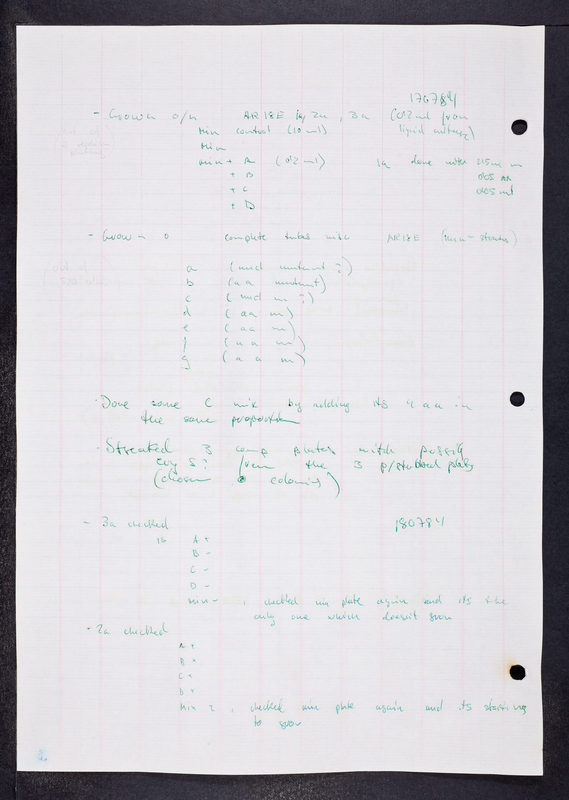 170784
- Grown o/n AR18E 1a, 2a, 3a (0.2 ml from
Min control (10 ml) liquid
Min
min + A (0.2 ml) 1a done with
+ B
+ C
+ D
- Grown o complete tubes with AR18E
a (nucl mutant ?)
b (aa mutant)
c (nucl m ?)
d (aa m)
e (aa m)
f (aa m)
g (aa m)
· Done some C mix by adding its 4 aa in
the same proportion
· Streaked 3 comp plates with
from the 3 plates
(chosen colonies)
- 3a checked 180784
A +
B -
C -
D -
min - , checked min plate again and its the
only one which doesnt grow
- 2a checked
A +
B +
C +
D +
Min ? , checked min plate again and its starting
to grow